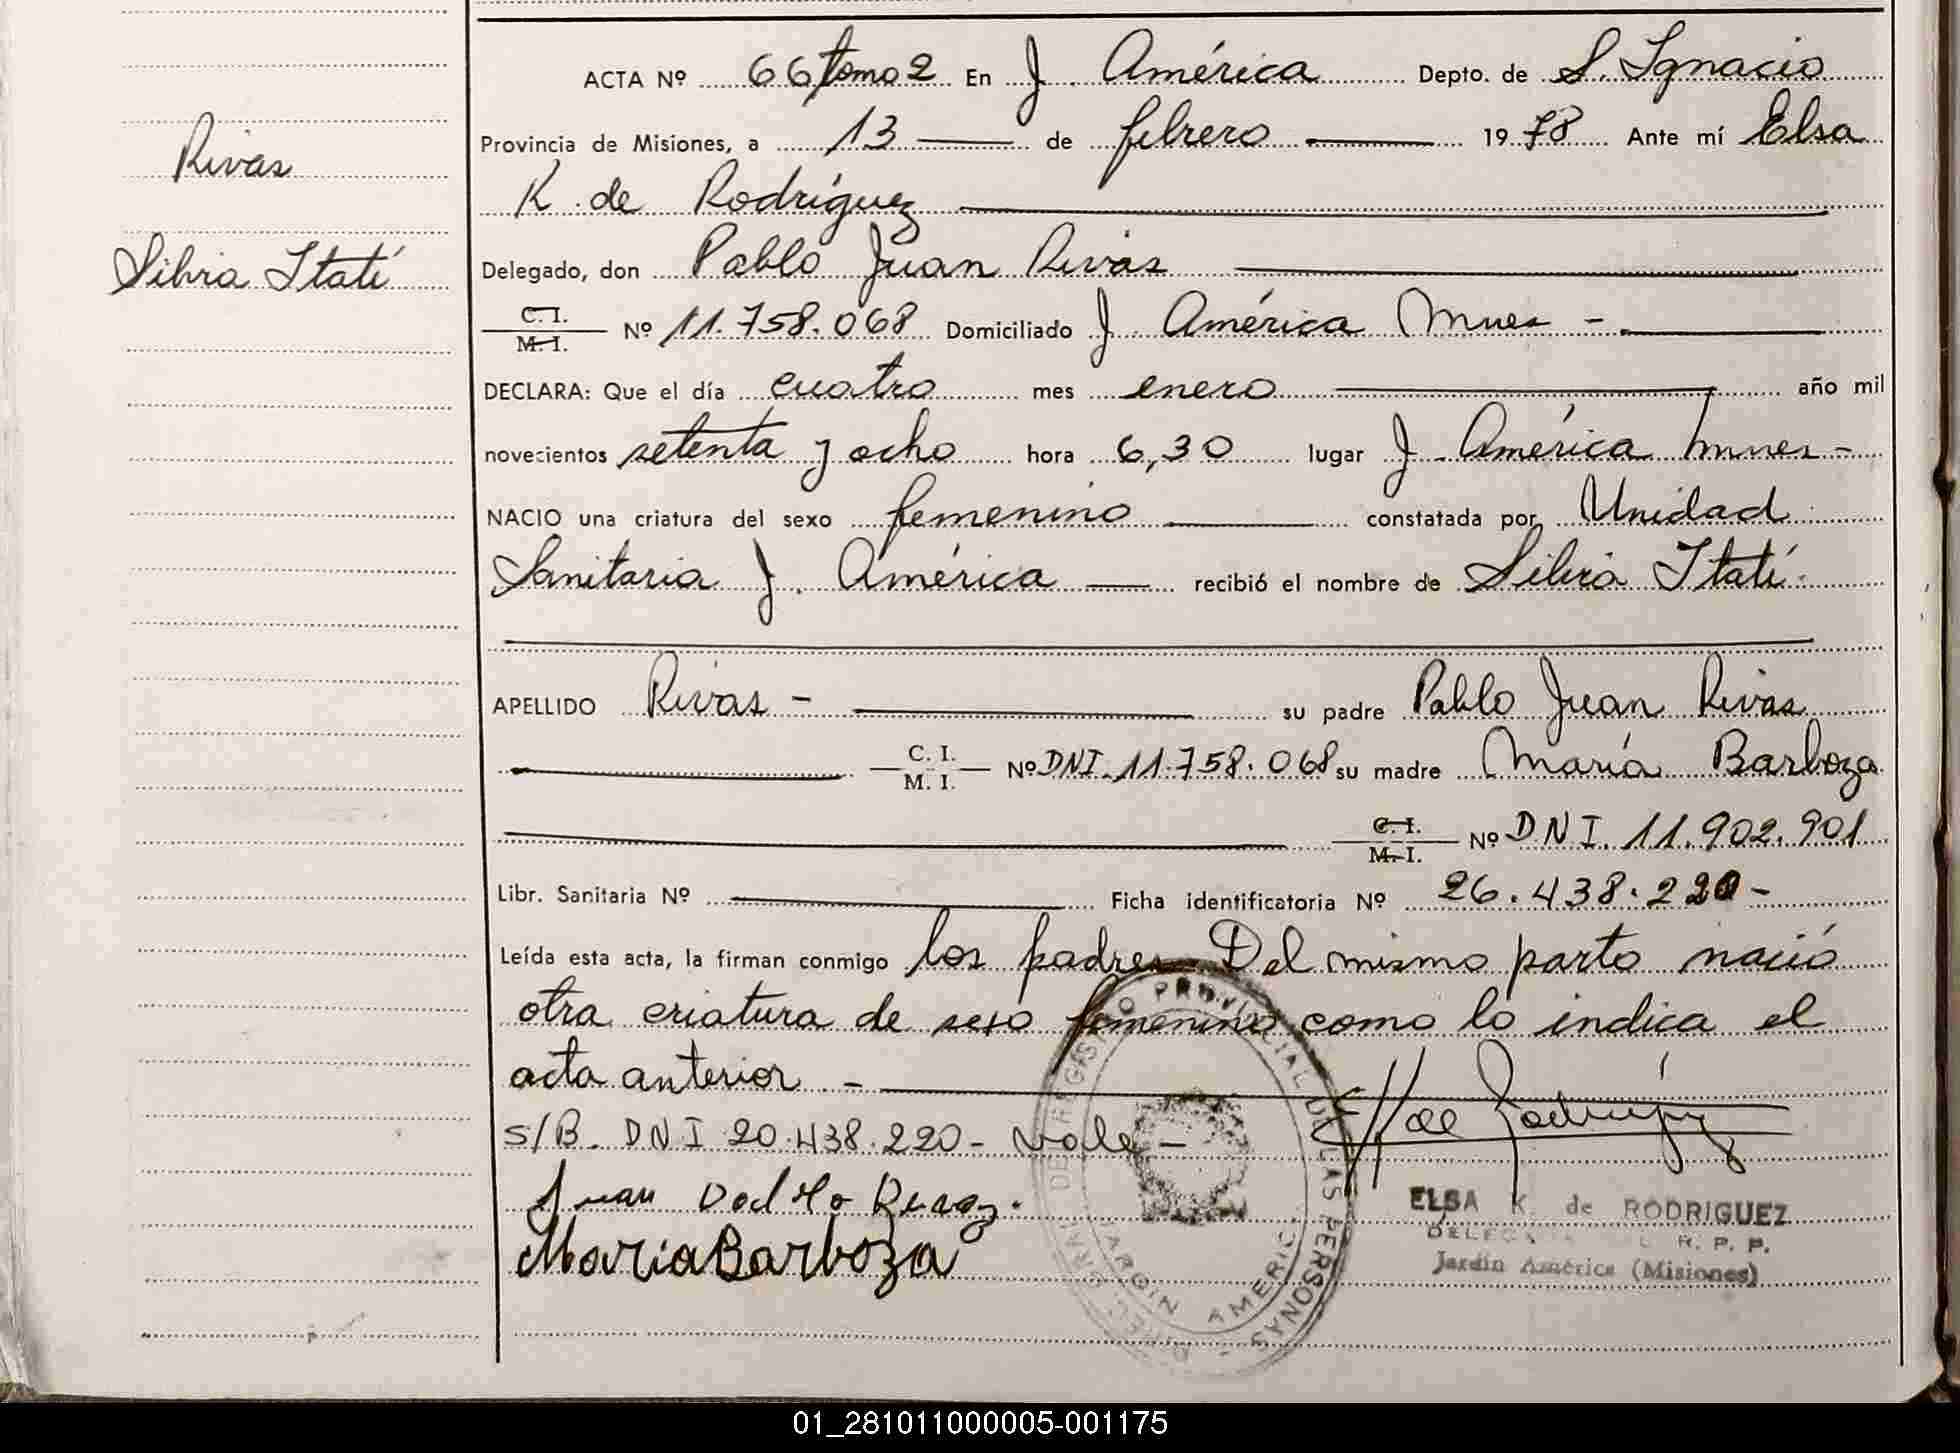 ACTA Nº 66 tomo 2 En J. América Depto. de S. Ignacio
Provincia de Misiones, a 13 de febrero 1978 Ante mí Elsa
Rivas
K. de Rodríguez
Silvia Itatí
Delegado, don Pablo Juan Rivas
C. I.
M. I.
Nº 11.758.068 Domiciliado J. América Mnes -
DECLARA: Que el día cuatro mes enero año mil
novecientos setenta y ocho hora 6,30 lugar J. América Mnes -
NACIO una criatura del sexo femenino constatada por Unidad
Sanitaria J. América recibió el nombre de Silvia Itatí
APELLIDO Rivas - su padre Pablo Juan Rivas
C. I.
M. I.
Nº DNI. 11.758.068 su madre María Barboza
C. I.
M. I.
Nº DNI. 11.902.901
Libr. Sanitaria Nº Ficha identificatoria Nº 26.438.220 -
Leída esta acta, la firman conmigo los padres Del mismo parto nació
otra criatura de sexo femenino como lo indica el
acta anterior -
S/B. DNI 20.438.220 - vale -
K de Rodríguez
Juan
Maria Barboza
ELSA K. de RODRIGUEZ
R. P. P.
Jardín América (Misiones)
REGISTRO PROVINCIAL DE LAS PERSONAS
JARDIN AMERICA
01_281011000005-001175